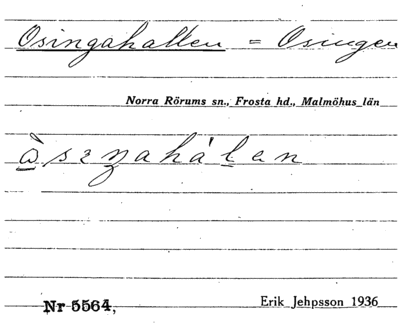 Osingahallen = Osingen
Norra Rörums sn., Frosta hd., Malmöhus län
Nr 5564,
Erik Jehpsson 1936